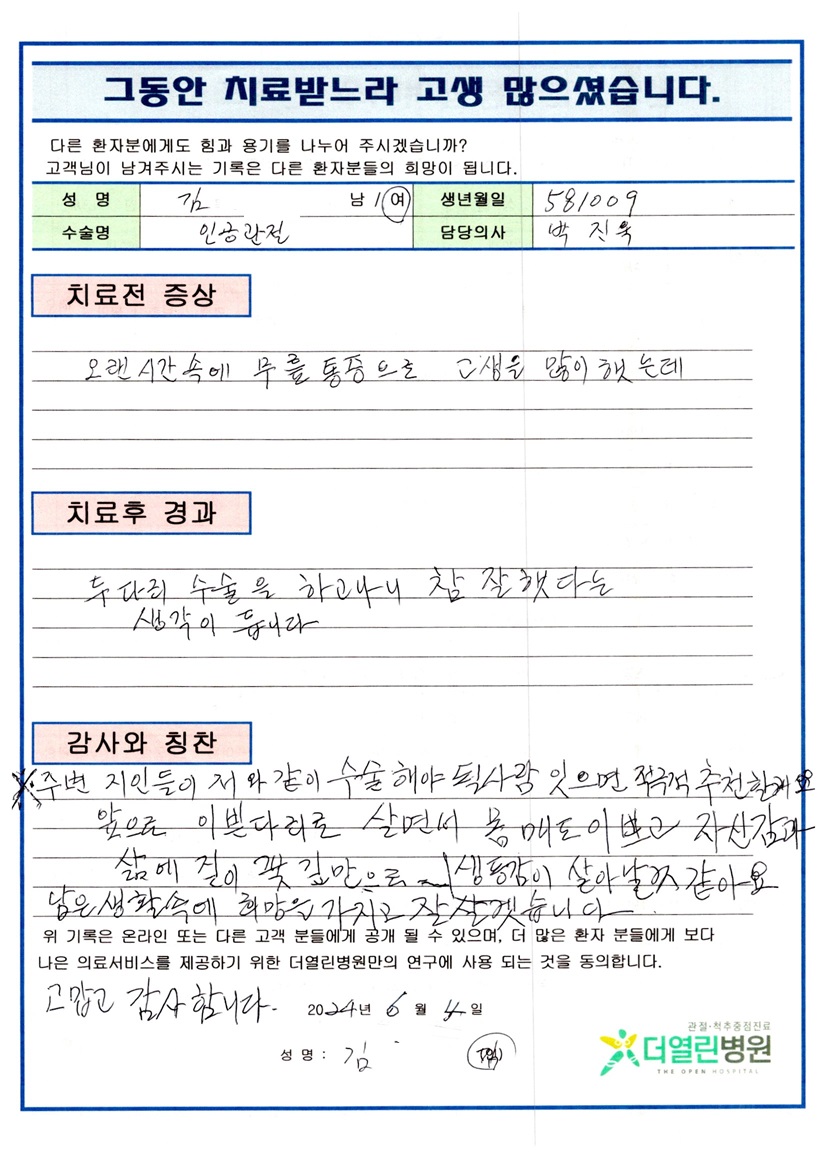 그동안 치료받느라 고생 많으셨습니다.
다른 환자분에게도 힘과 용기를 나누어 주시겠습니까?
고객님이 남겨주시는 기록은 다른 환자분들의 희망이 됩니다.
성 명 김 남 / 여 생년월일 581009
수술명 인공관절 담당의사 박진욱
치료전 증상
오랜시간속에 무릎통증으로 고생을 많이 했는데
치료후 경과
두다리 수술을 하고나니 참 잘했다는
생각이 듭니다
감사와 칭찬
※주변 지인들이 저와같이 수술해야 될사람 잇으면 적극적 추천할게요
앞으로 이쁜다리로 살면서 몸매도이쁘고 자신감과
삶에 질이 꽃길만으로 생동감이 살아날것 같아요
남은생활속에 희망을 가지고 잘살겟습니다
위 기록은 온라인 또는 다른 고객 분들에게 공개 될 수 있으며, 더 많은 환자 분들에게 보다
나은 의료서비스를 제공하기 위한 더열린병원만의 연구에 사용 되는 것을 동의합니다.
고맙고 감사합니다. 2024년 6월 4일
관절·척추중점진료
더열린병원
THE OPEN HOSPITAL
성 명 : 김